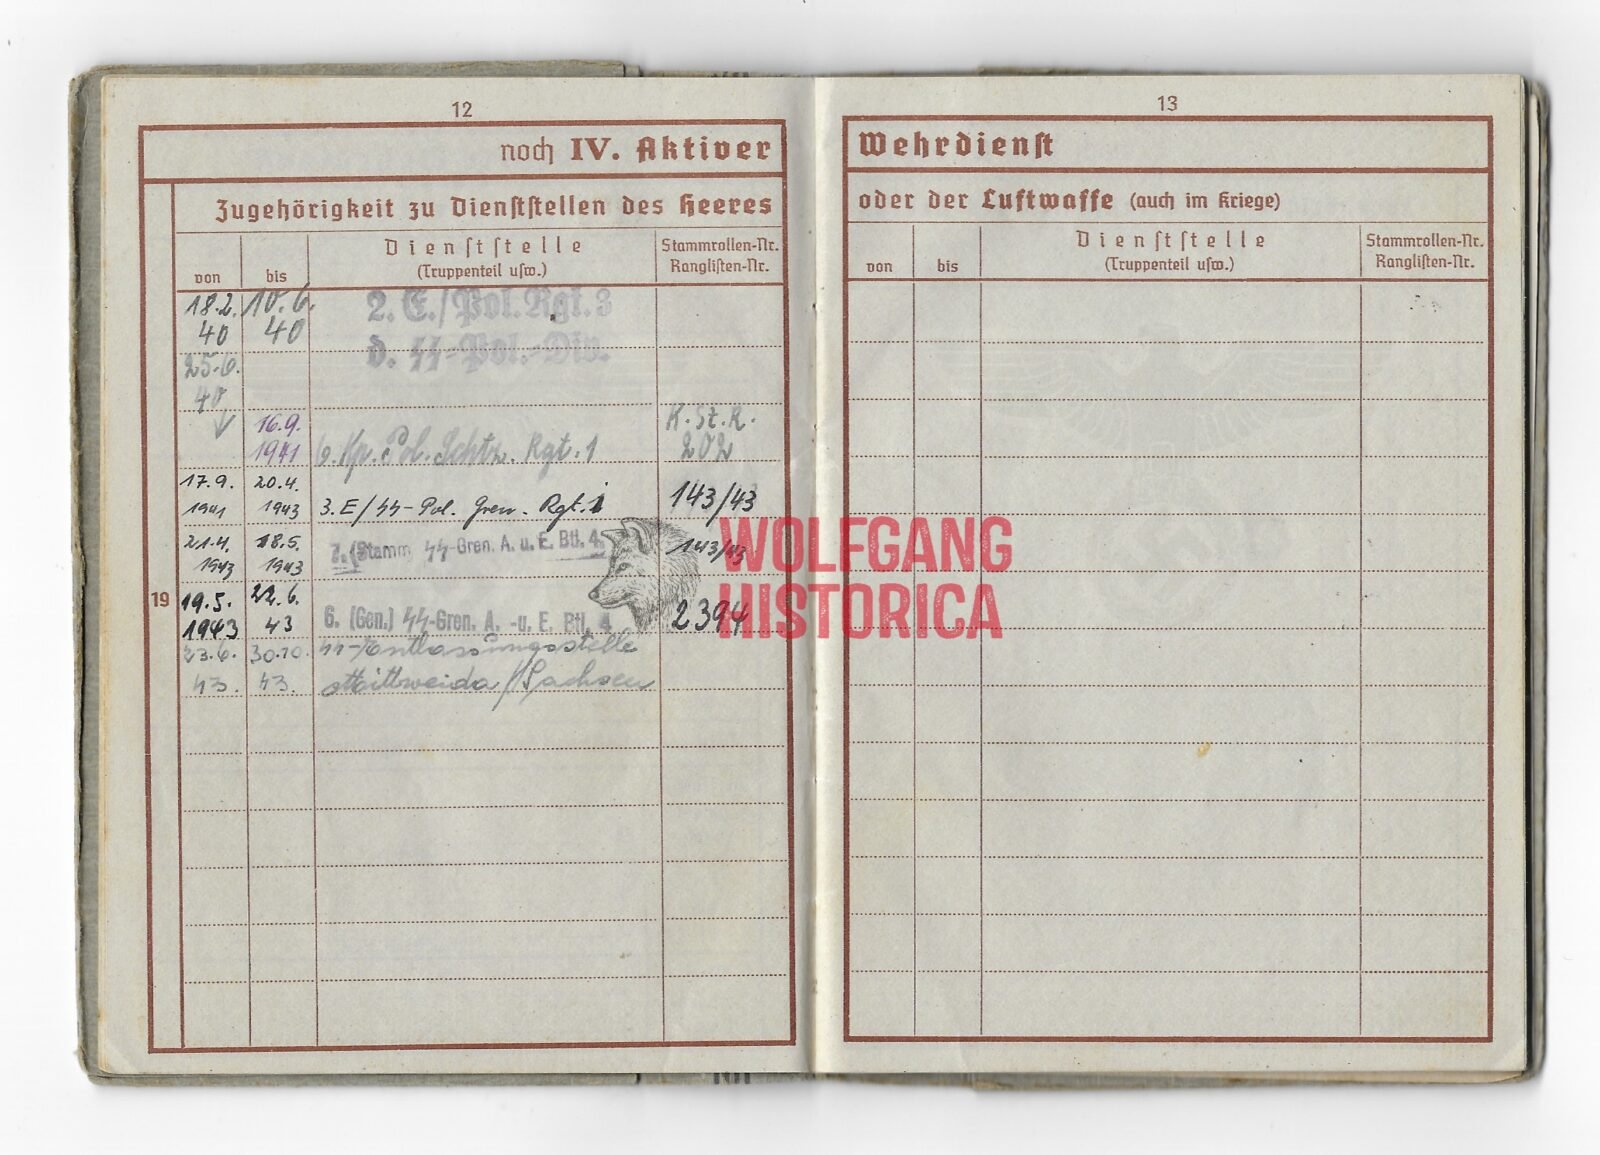 12
noch IV. Aktiver
Zugehörigkeit zu Dienststellen des Heeres
von bis Dienststelle (Truppenteil usw.) Stammrollen-Nr. Ranglisten-Nr.
18.2. 40 10.6. 40 2. E./Pol. Rgt. 3
d. SS-Pol.-Div.
25.6. 40
16.9. 1941 6. Kp. Pol. Schtz. Rgt. 1 K. St. R. 202
17.9. 1941 20.4. 1943 3. E/SS-Pol. Gren. Rgt. 1 143/43
21.4. 1943 18.5. 1943 7. (Stamm) SS-Gren. A. u. E. Btl. 4 143/43
19
19.5. 1943 22.6. 43 6. (Gen.) SS-Gren. A. -u. E. Btl. 4 2394
23.6. 43. 30.10. 43. SS-Entlassungsstelle
Mittweida/Sachsen
13
Wehrdienst
oder der Luftwaffe (auch im Kriege)
von bis Dienststelle (Truppenteil usw.) Stammrollen-Nr. Ranglisten-Nr.
WOLFGANG
HISTORICA